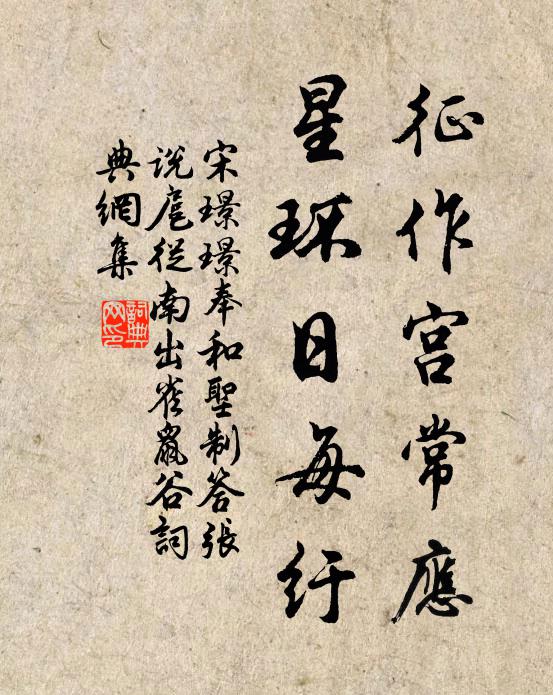 征作宫常應
星环日每紆
宋璟璟奉和聖制答張
說扈從南出雀鼠谷詞
典網集
詞典
网印